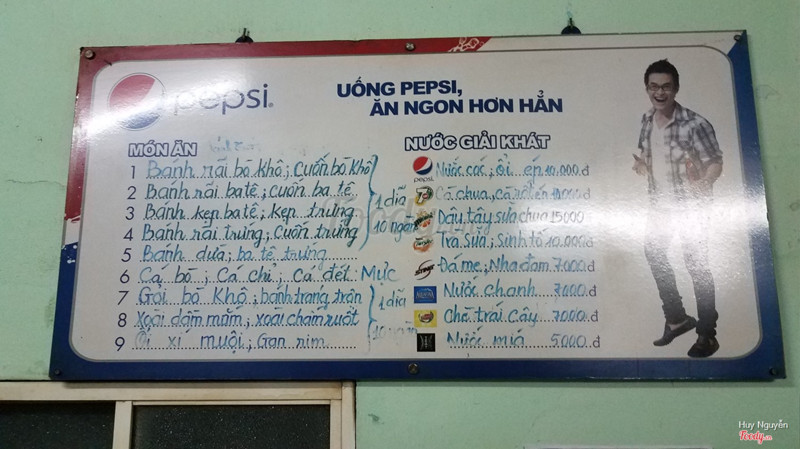 pepsi
UỐNG PEPSI,
ĂN NGON HƠN HẲN
MÓN ĂN
1 Bánh rải bò khô; Cuốn bò khô
2 Bánh rải ba tê; cuốn ba tê
3 Bánh kẹp ba tê; kẹp trứng
4 Bánh rải trứng; Cuốn trứng
1 dĩa
10 ngàn
5 Bánh dừa; ba tê trứng
6 Cá bò; Cá chỉ; Cá đét. Mực
7 Gỏi bò khô; bánh tráng trộn
8 Xoài dầm mắm; xoài chấm ruốt
9 Ổi xí muội; Gan rim
1 dĩa
NƯỚC GIẢI KHÁT
pepsi Nước cóc; ổi ép 10.000 đ
Cà chua, cà rốt ép 10.000 đ
Dâu tây sữa chua 15000
Trà sữa; Sinh tố 10.000 đ
Đá me; Nha đam 7000 đ
Nước chanh 7000 đ
Chè trái cây 7000 đ
Nước mía 5000 đ
Huy Nguyễn
Foody.vn